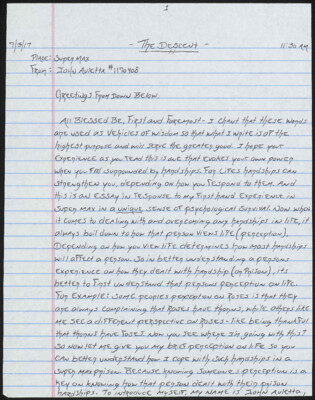 1
7/9/17 - The Descent - 11:30 AM
Place: Super Max
From: John
Greetings From Down Below,
All Blessed Be, First and Foremost - I chant that these words
are used as vehicles of wisdom so that what I write is of the
highest purpose and will serve the greater good. I hope your
experience as you read this is one that evokes your own power
when you feel surrounded by hardships. For Lifes hardships can
strengthen you, depending on how you respond to them. And
this is an essay in response to my first hand experience in
Super max in a unique sense of psychological survival. Now when
it comes to dealing with and overcoming any hardships in life, it
always boil down to how that person views life (perception).
Depending on how you view life determines how most hardships
will affect a person. So in better understanding a persons
experience on how they dealt with hardship (or Prison), its
better to first understand that persons perception on life.
For Example: Some peoples perception on Roses is that they
are always complaining that Roses have thorns, while others like
me see a different perspective on Roses - like being thankful
that thorns have roses. Now you see where I'm going with this?
So now let me give you my brief perception on life so you
can better understand how I cope with such hardships in a
super max prison. Because knowing someones perception is a
key on knowing how that person dealt with their prison
hardships. To introduce myself, my name is John